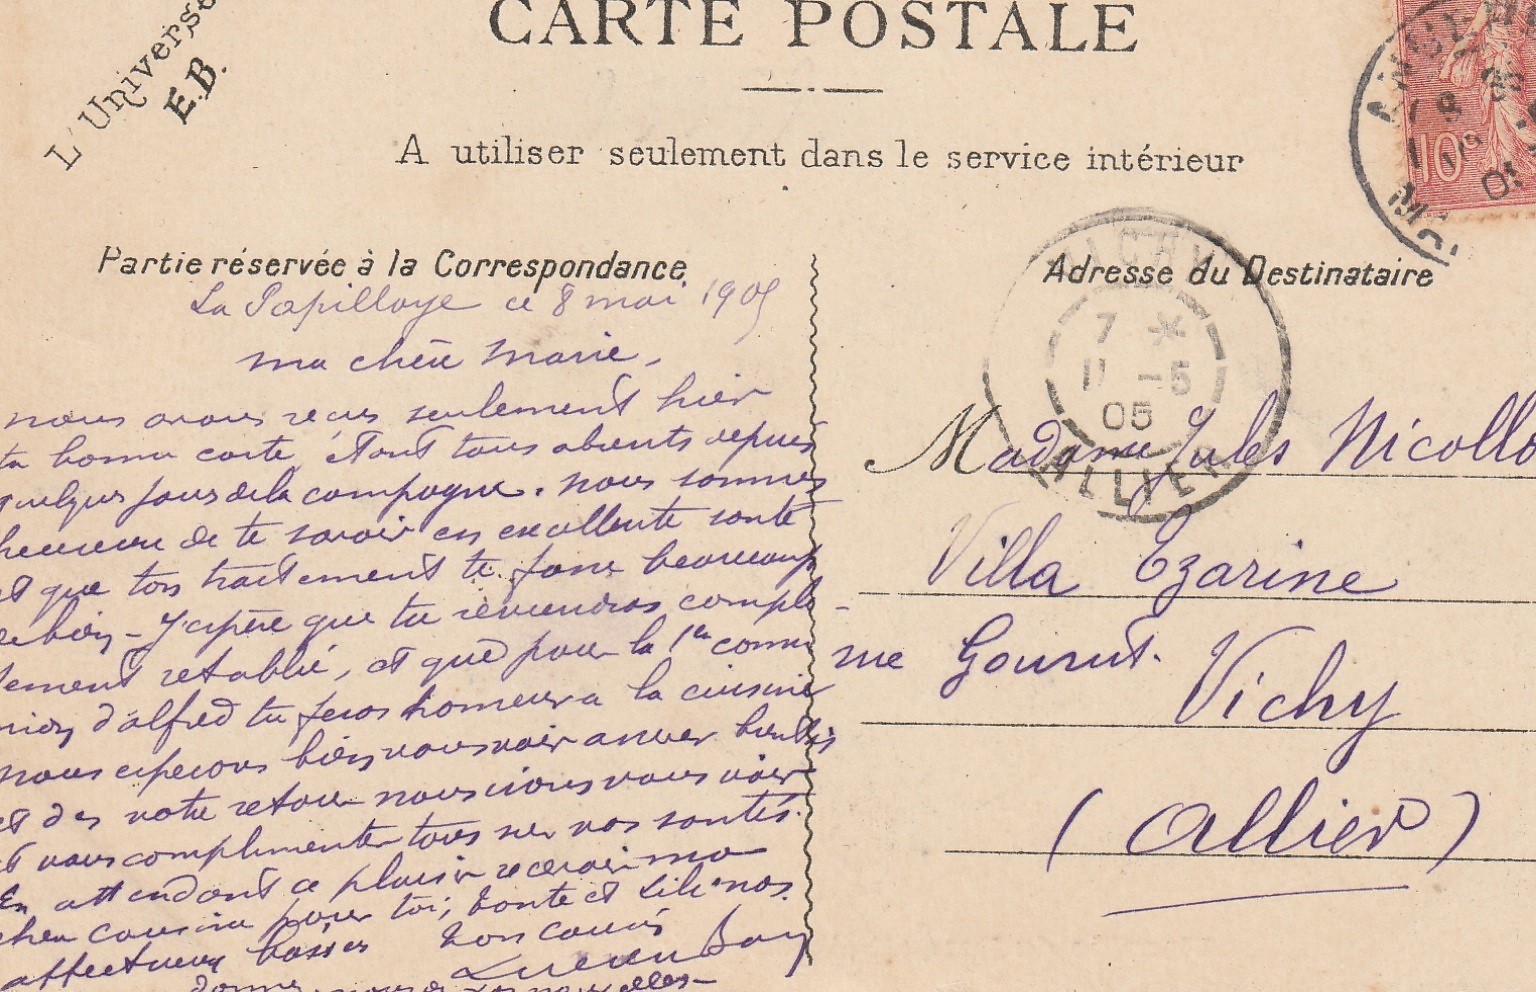 L'Univers
E.B.
CARTE POSTALE
A utiliser seulement dans le service intérieur
Partie réservée à la Correspondance
La Papilloye ce 8 mai 1905
ma chère Marie,
nous avons reçus seulement hier
ta bonne carte, étant tous absents depuis
quelques jours de la campagne. nous sommes
heureux de te savoir en excellente santé
et que ton traitement te fasse beaucoup
de bien - J'espère que tu reviendras complè-
tement retablie, et que pour la 1re commu
nion d'alfred tu feras honneur a la cuisine
nous esperons bien vous voir arriver bientôt
et des notre retour nous irons vous voir
et vous complimenter tous sur vos santés.
En attendant ce plaisir recevoir ma
chere cousine pour toi, tante et Lili nos
affectueux baisers ton cousin
Lucien
donne nous de tes nouvelles-
Adresse du Destinataire
VICHY
7 *
11 -5
05
ALLIER
Madame Jules Nicollo
Villa Czarine
rue Gourut.
Vichy
(Allier)
10
05